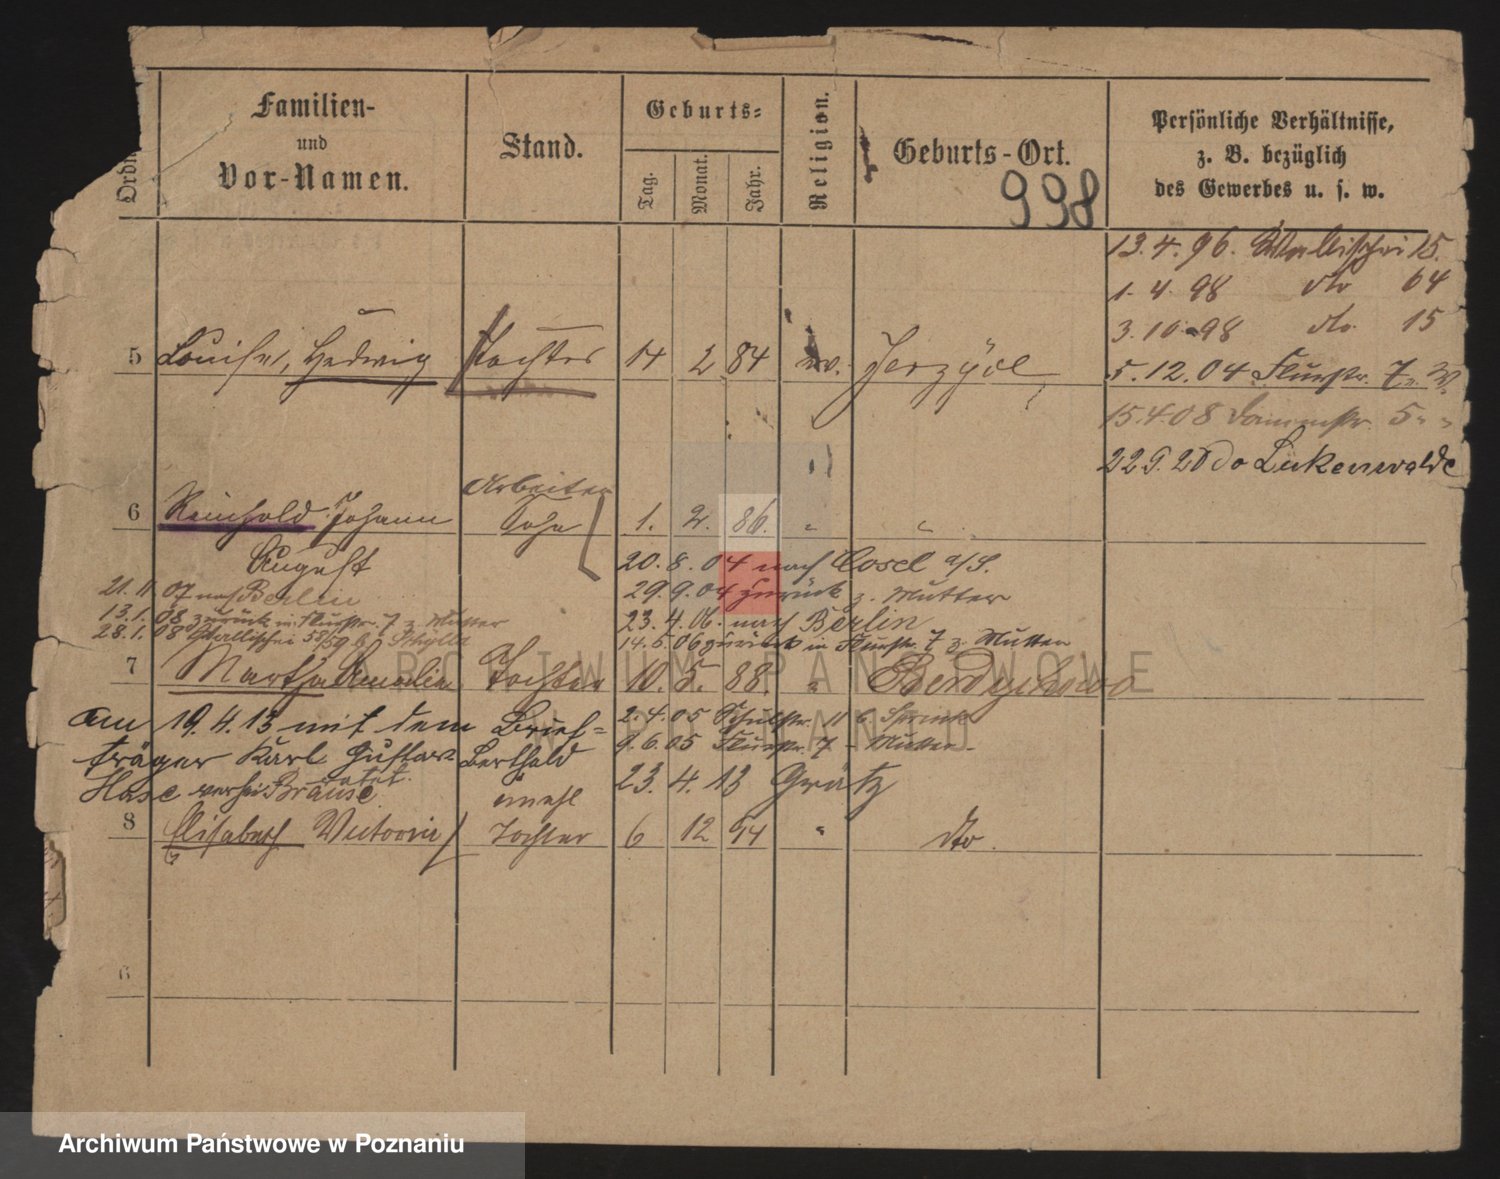 Ordn
Familien-
und
Vor-Namen.
Stand.
Geburts-
Tag.
Monat.
Jahr.
Religion.
Geburts-Ort.
998
Persönliche Verhältnisse,
z. B. bezüglich
des Gewerbes u. s. w.
13.4.96. Wallischei 15.
1.4.98 dto 64
3.10.98 dto. 15
5 Louise, Hedwig Tochter 14 2 84 ev. Jerzyce
5.12.04 Flurstr. 7
15.4.08 Dammstr. 5
22 9. 20 do Lukenwalde
Arbeiter
6 Reinhold Johann Sohn 1. 2. 86. " "
August
20.8.04 nach Cosel a/S.
21.11.07 nach Berlin
29.9.04 zurück z. Mutter
13.1.08 zurück in Flurstr. 7 z. Mutter
23.4.06. nach Berlin
28.1.08 Wallischei 58/59
14.5.06 zurück in Flurstr. 7 z. Mutter
7 Martha Amalie Tochter 10. 5. 88. "
am 19.4.13 mit dem Brief=
2.4.05 Schulstr. 11
träger Karl Gustav Berthold
9.6.05 Flurstr. 7 - Mutter -
Hase
23.4.13 Grätz
8 Elisabeth Victoria Tochter 6 12 94 " dto.
6
ARCHIWUM PAŃSTWOWE
W POZNANIU
Archiwum Państwowe w Poznaniu